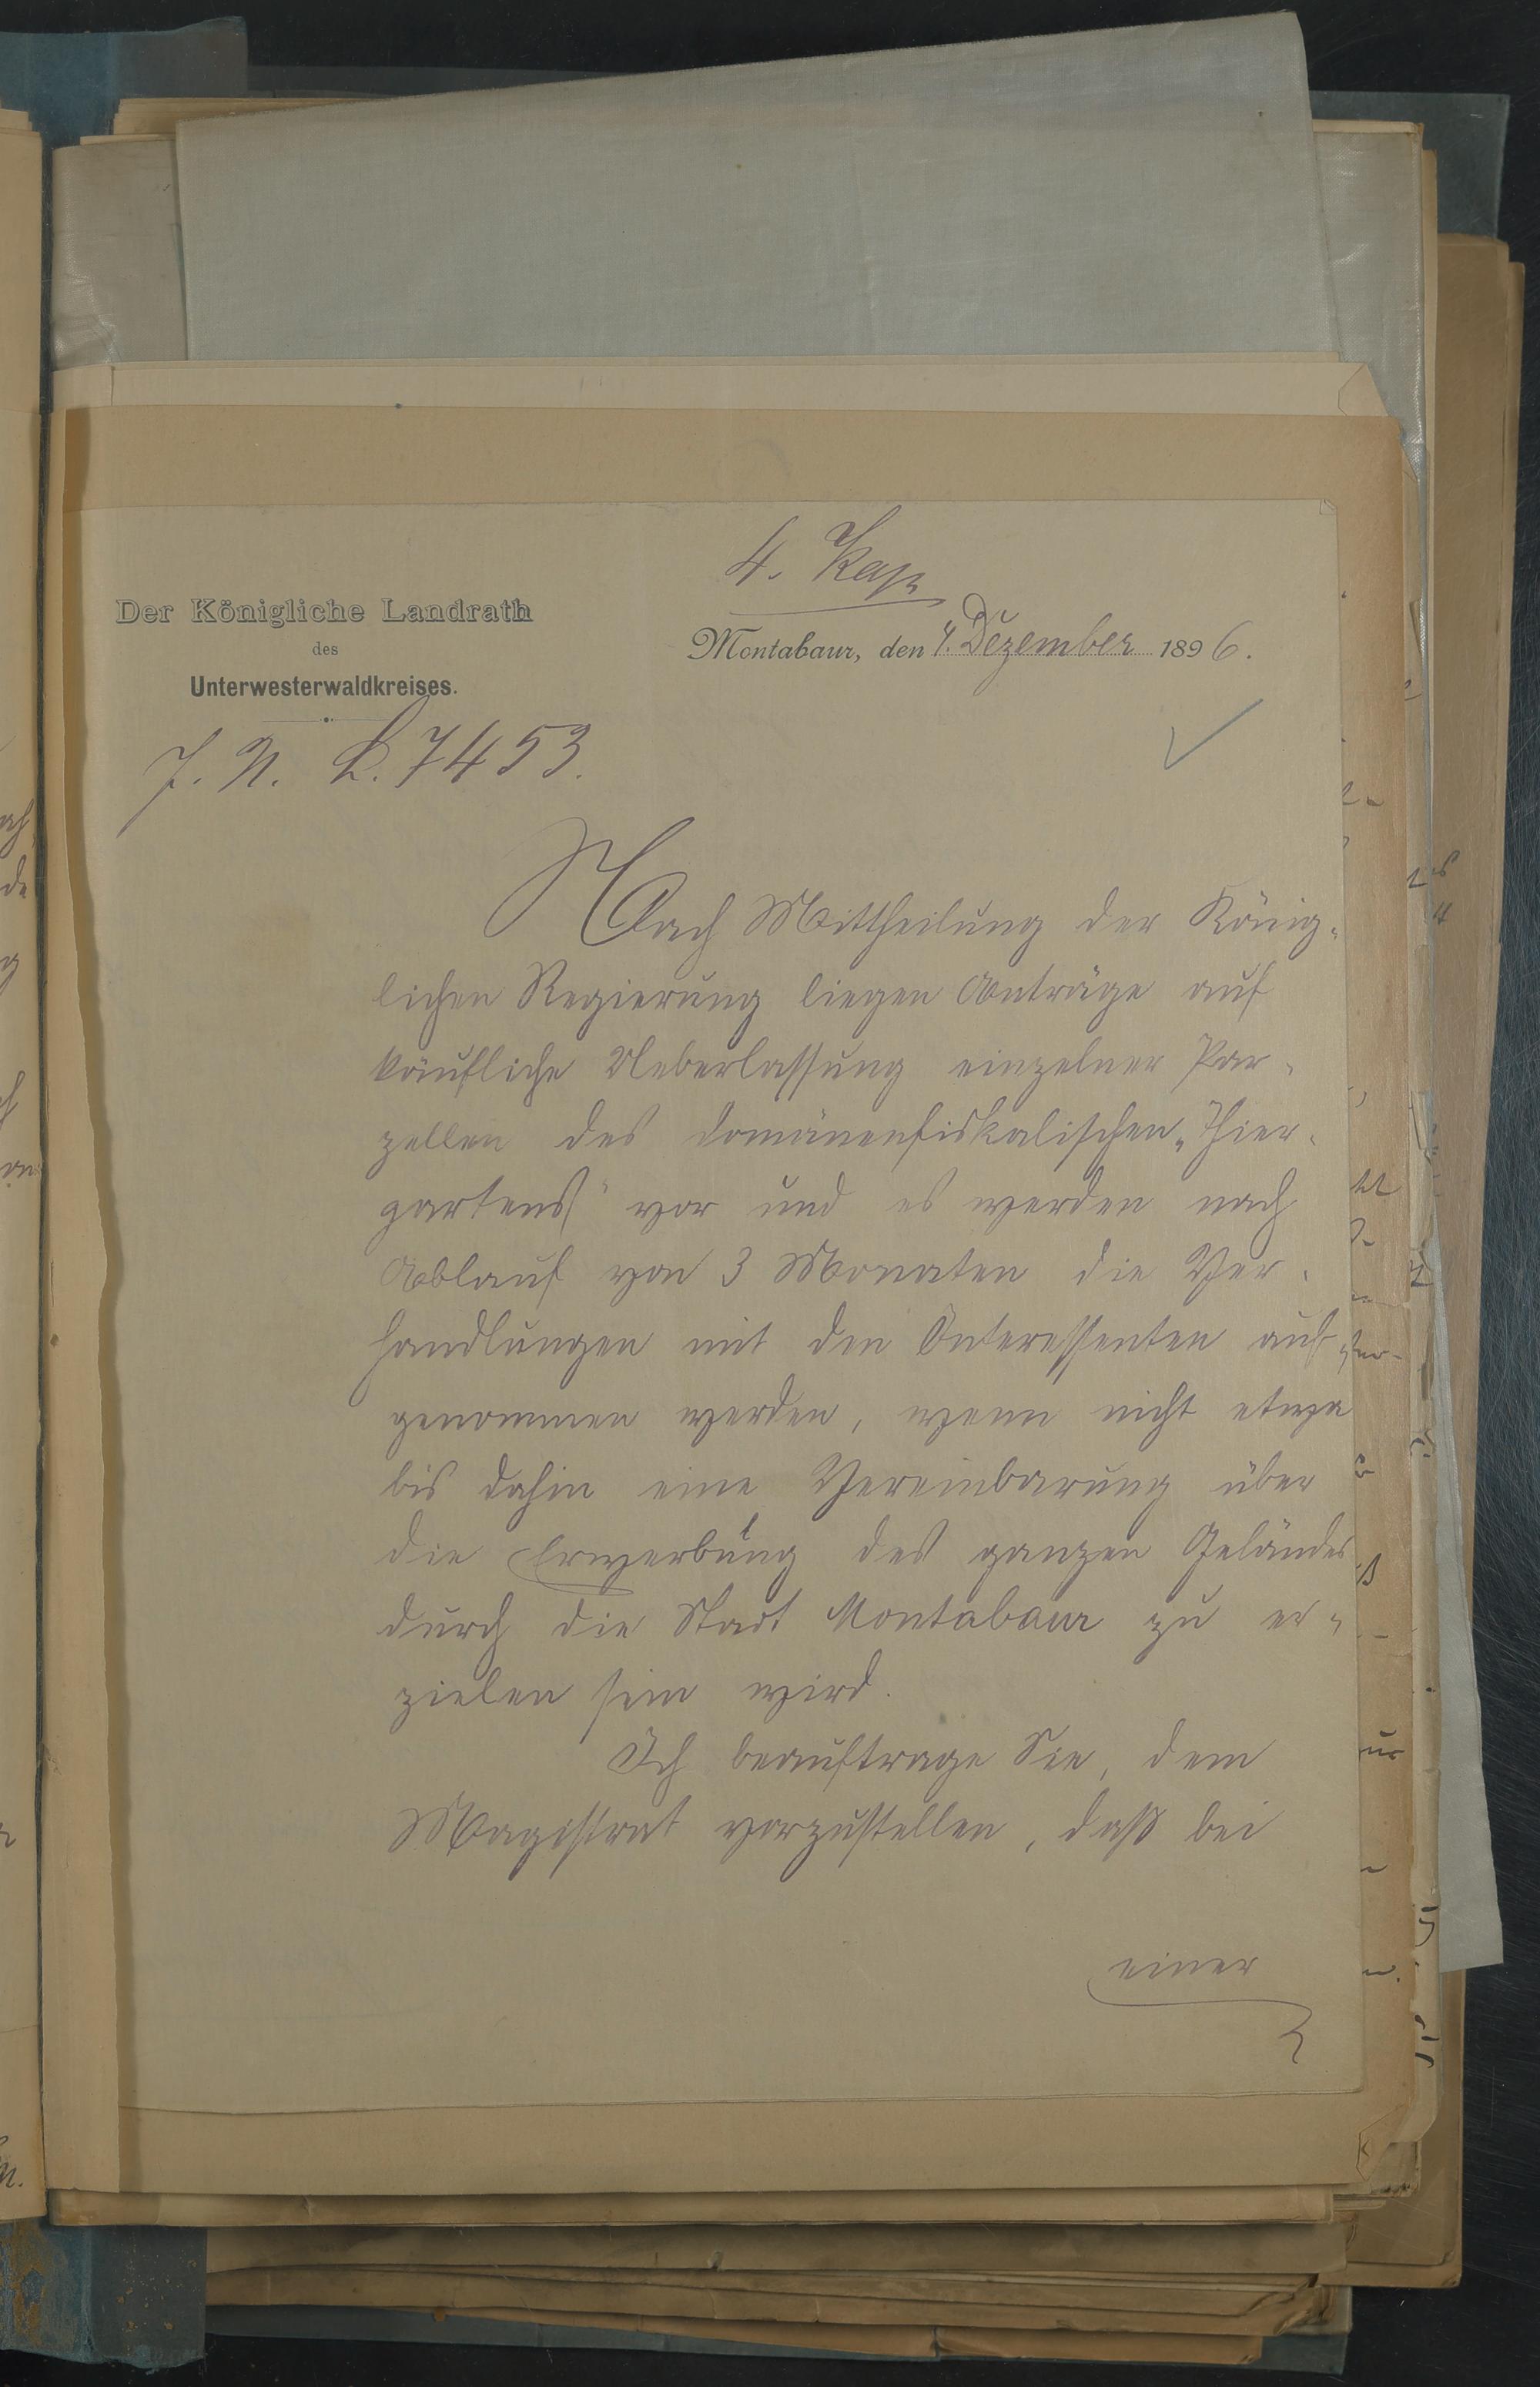 4. Kap
Der Königliche Landrath
des
Unterwesterwaldkreises.
Montabaur, den 4. Dezember 1896.
J. N. L. 7453.
Nach Mittheilung der König-
lichen Regierung liegen Anträge auf
käufliche Ueberlassung einzelner Par-
zellen des domänenfiskalischen „Thier-
gartens" vor und es werden nach
Ablauf von 3 Monaten die Ver-
handlungen mit den Interessenten auf-
genommen werden, wenn nicht etwa
bis dahin eine Vereinbarung über
die Erwerbung des ganzen Geländes
durch die Stadt Montabaur zu er-
zielen sein wird.
Ich beauftrage Sie, dem
Magistrat vorzustellen, daß bei
einer